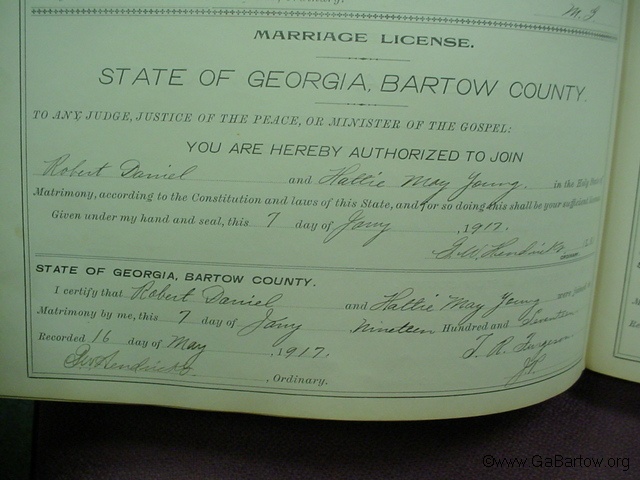 M. G
MARRIAGE LICENSE.
STATE OF GEORGIA, BARTOW COUNTY.
TO ANY, JUDGE, JUSTICE OF THE PEACE, OR MINISTER OF THE GOSPEL:
YOU ARE HEREBY AUTHORIZED TO JOIN
Robert Daniel and Hattie May Young. in the Holy
Matrimony, according to the Constitution and laws of this State, and for so doing this shall be your sufficient
Given under my hand and seal, this 7 day of Jany, 1917.
G. W. Hendricks
STATE OF GEORGIA, BARTOW COUNTY.
I certify that Robert Daniel and Hattie May Young were
Matrimony by me, this 7 day of Jany Nineteen Hundred and Seventeen
Recorded 16 day of May, 1917. T. R. Furgerson
GW Hendricks, Ordinary. J.P.
©www.GaBartow.org